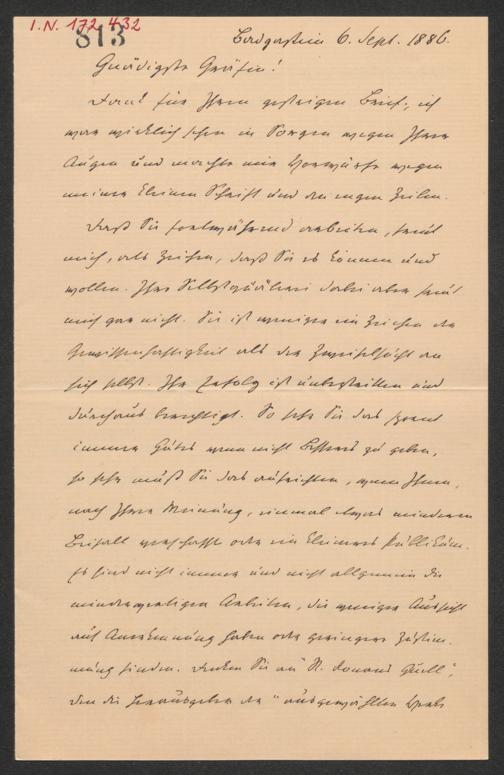 I. N. 172.432
813
Badgastein 6. Sept. 1886.
Gnädigste Gräfin!
Dank für Ihren gestrigen Brief; ich
war wirklich schon in Sorgen wegen Ihrer
Augen und machte mir Vorwürfe wegen
meiner kleinen Schrift und den engen Zeilen.
Daß Sie fortwährend arbeiten, freut
mich, als Zeichen, daß Sie es können und
wollen. Ihre Selbstquälerei dabei aber freut
mich gar nicht. Sie ist weniger ein Zeichen der
Gewissenhaftigkeit als der Zweifelsucht an
sich selbst. Ihr Erfolg ist unbestritten und
durchaus berechtigt. So sehr Sie das spornt
immer Gutes wenn nicht Besseres zu geben,
so sehr muß Sie das aufrichten, wenn Ihnen,
nach Ihrer Meinung, einmal etwas minderen
Beifall verschafft oder ein kleineres Publikum.
Es sind nicht immer und nicht allgemein die
minderwertigen Arbeiten, die weniger Aussicht
auf Anerkennung haben oder geringere Zustim-
mung finden. Denken Sie an "St. Donans Quell",
den die Herausgeber der "ausgewählten Werke